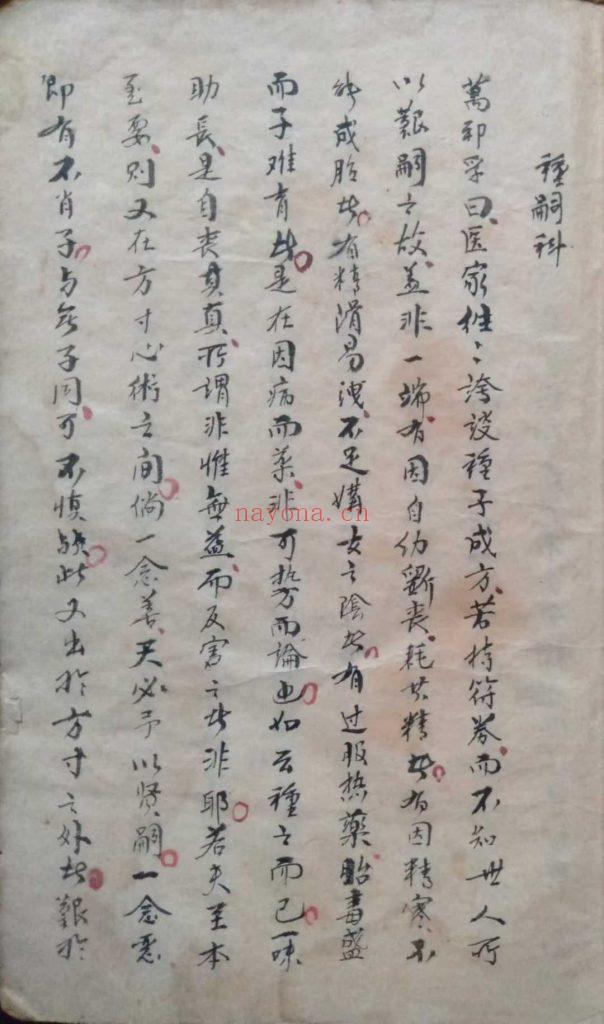 種嗣科
萬邦孚曰医家往々誇設種子成方若持符券而不知世人所
以艱嗣之故盖非一端有因自幼斲丧耗其精者有因精寒不
能成胎者有精滑易洩不足媾女之陰者有过服热藥胎毒盛
而子难育者是在因病而药非可执方而論也如云種之而已一味
助長是自丧其真所谓非惟無益而反害之者非耶若夫至本
至要则又在方寸心術之间倘一念善天必予以贤嗣一念惡
即有不肖子与无子同可不慎欤此又出於方寸之外者艱於
nayona.cn